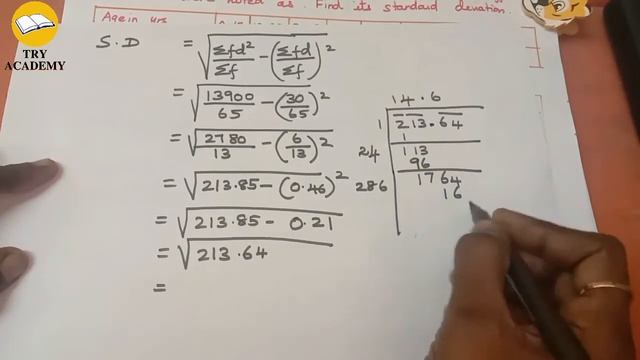 were noted as. Find its standard deviation.
Age in yrs
TRY
ACADEMY
S.D = √(Σfd²/Σf − (Σfd/Σf)²)
= √(13900/65 − (30/65)²)
= √(2780/13 − (6/13)²)
= √(213.85 − (0.46)²)
= √(213.85 − 0.21)
= √213.64
=
14.6
1 213.64
1
24 113
96
286 1764
16